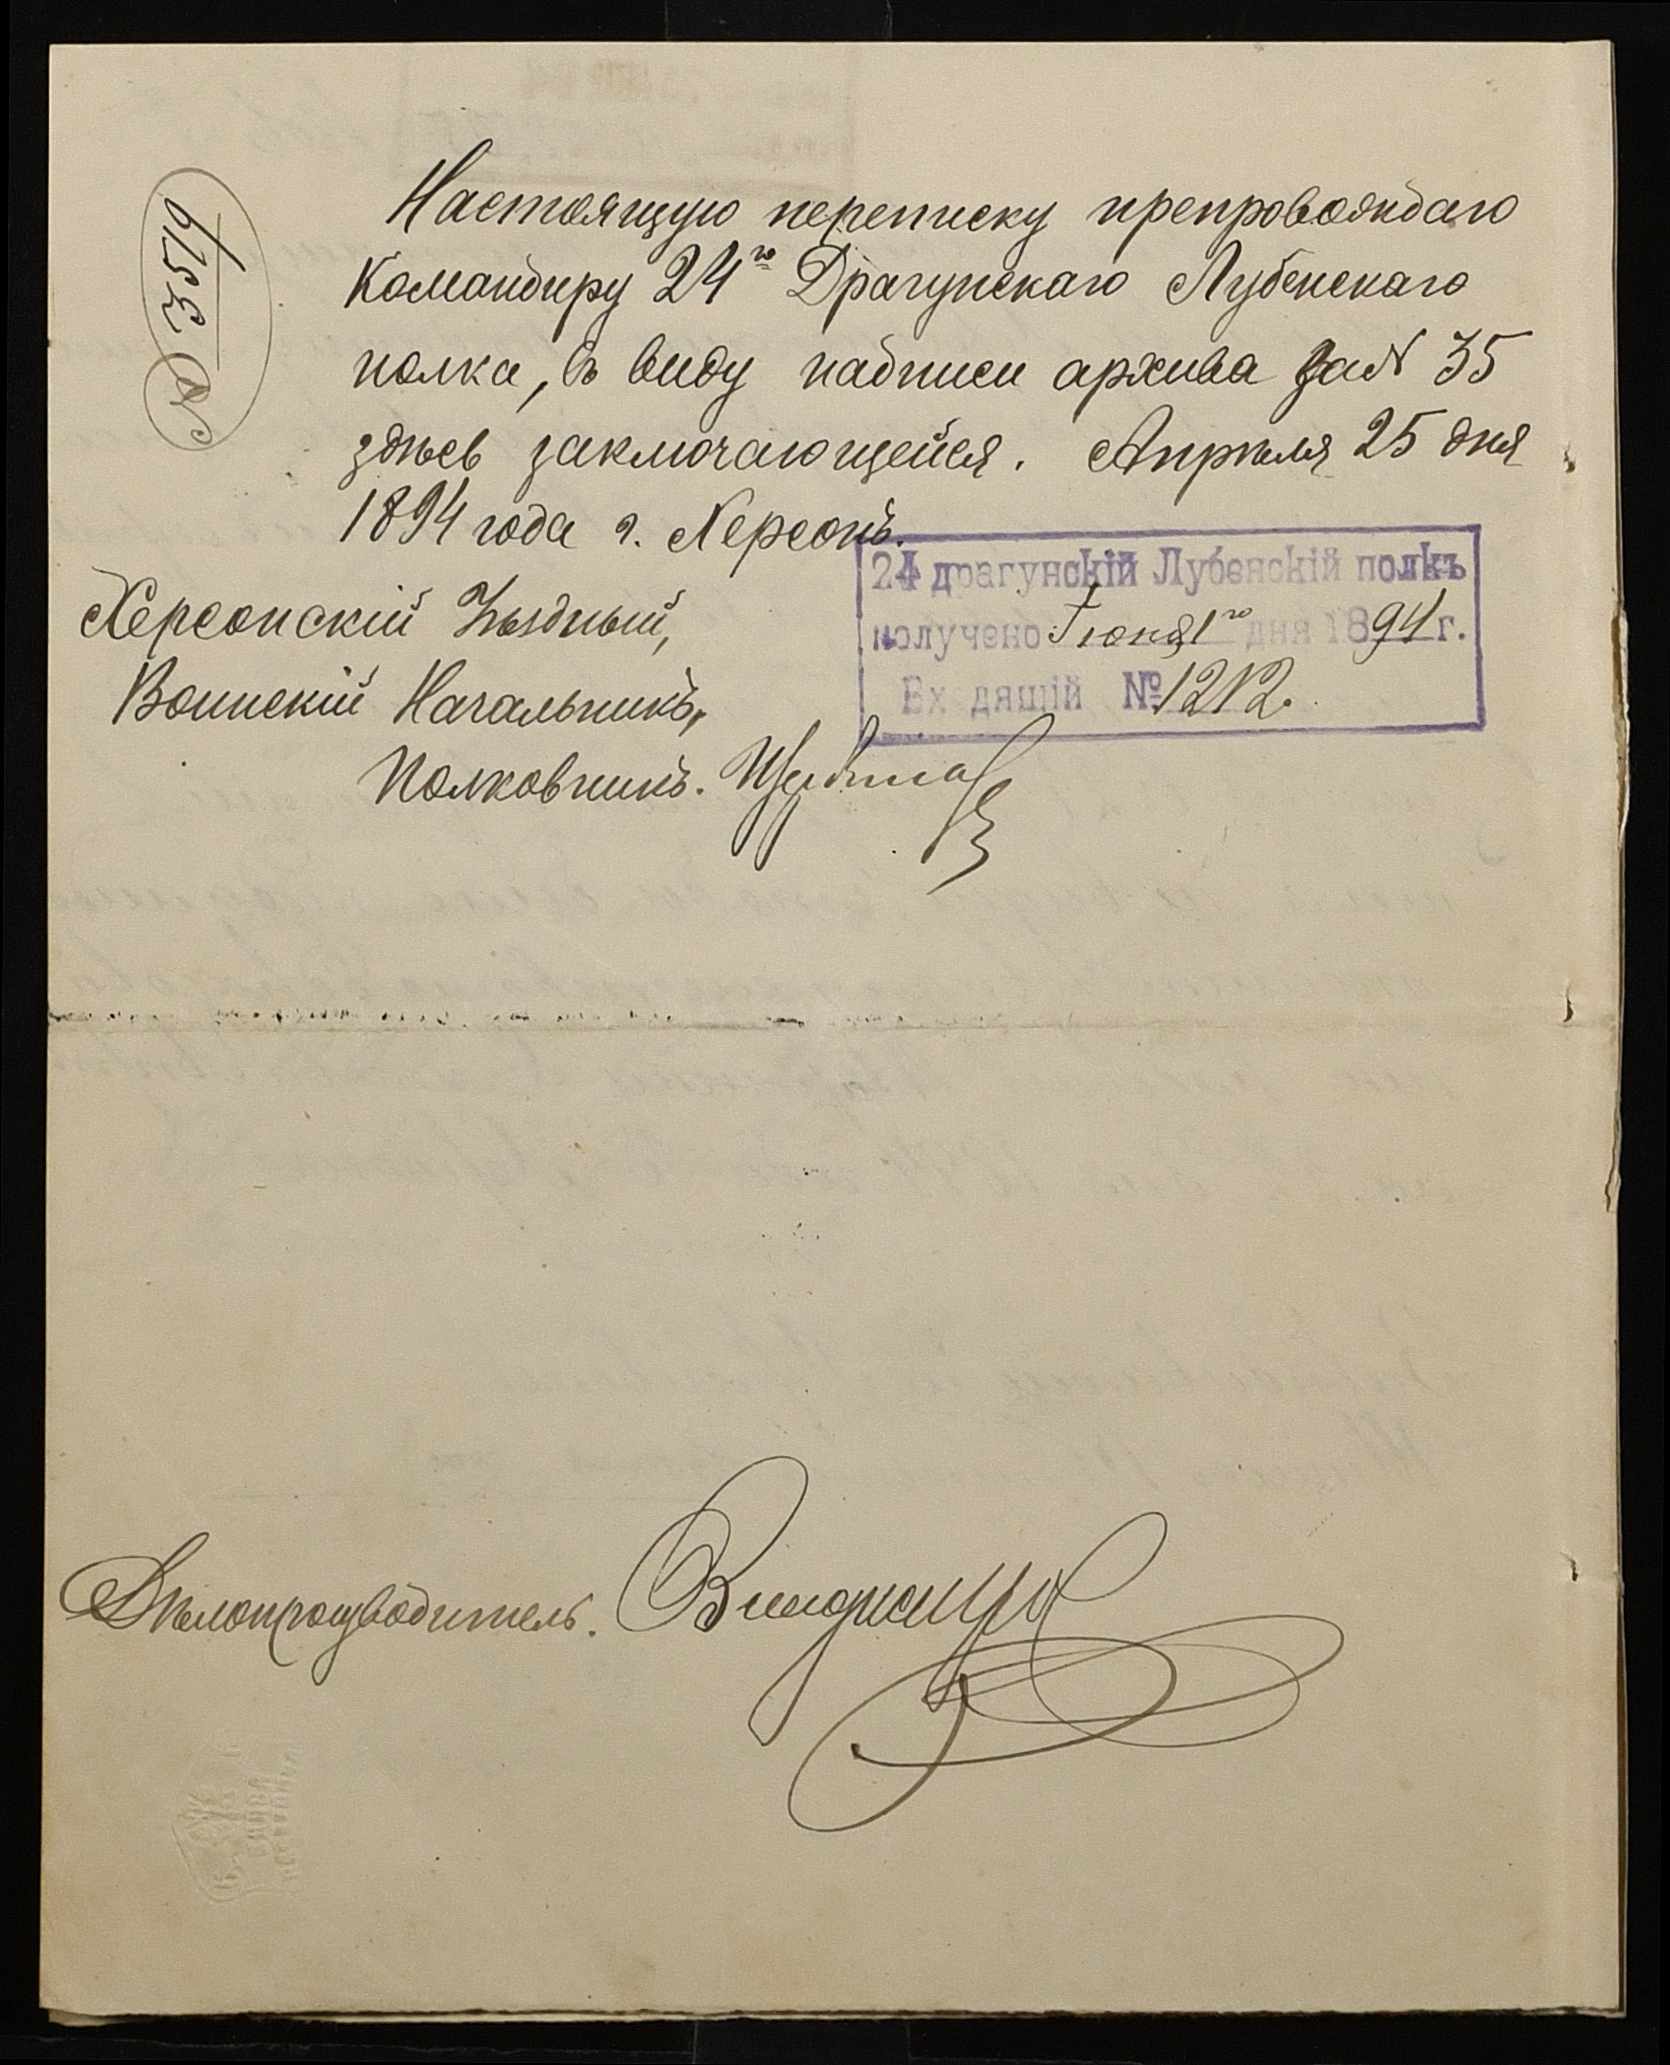 № 3519
Настоящую переписку препровождаю
Командиру 24го Драгунскаго Лубенскаго
полка, въ виду надписи архива за № 35
здѣсь заключающейся. Апрѣля 25 дня
1894 года г. Херсонъ.
24 драгунскій Лубенскій полкъ
получено Іюня 1го дня 1894 г.
Вх дящій № 1212.
Херсонскій Уѣздный,
Воинскій Начальникъ,
Полковникъ.
Дѣлопроизводитель.